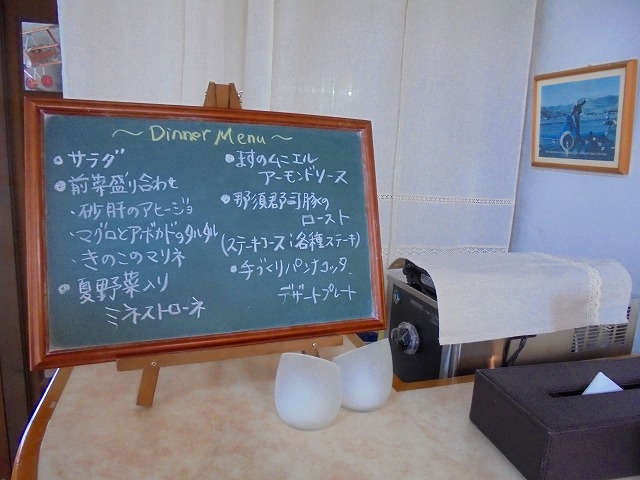 ～Dinner Menu～
•サラダ
•前菜盛り合わせ
・砂肝のアヒージョ
・マグロとアボカドのタルタル
・きのこのマリネ
•夏野菜入り
ミネストローネ
•ますのムニエル
アーモンドソース
•那須郡司豚の
ロースト
(ステーキコース:各種ステーキ)
•手づくりパンナコッタ、
デザートプレート